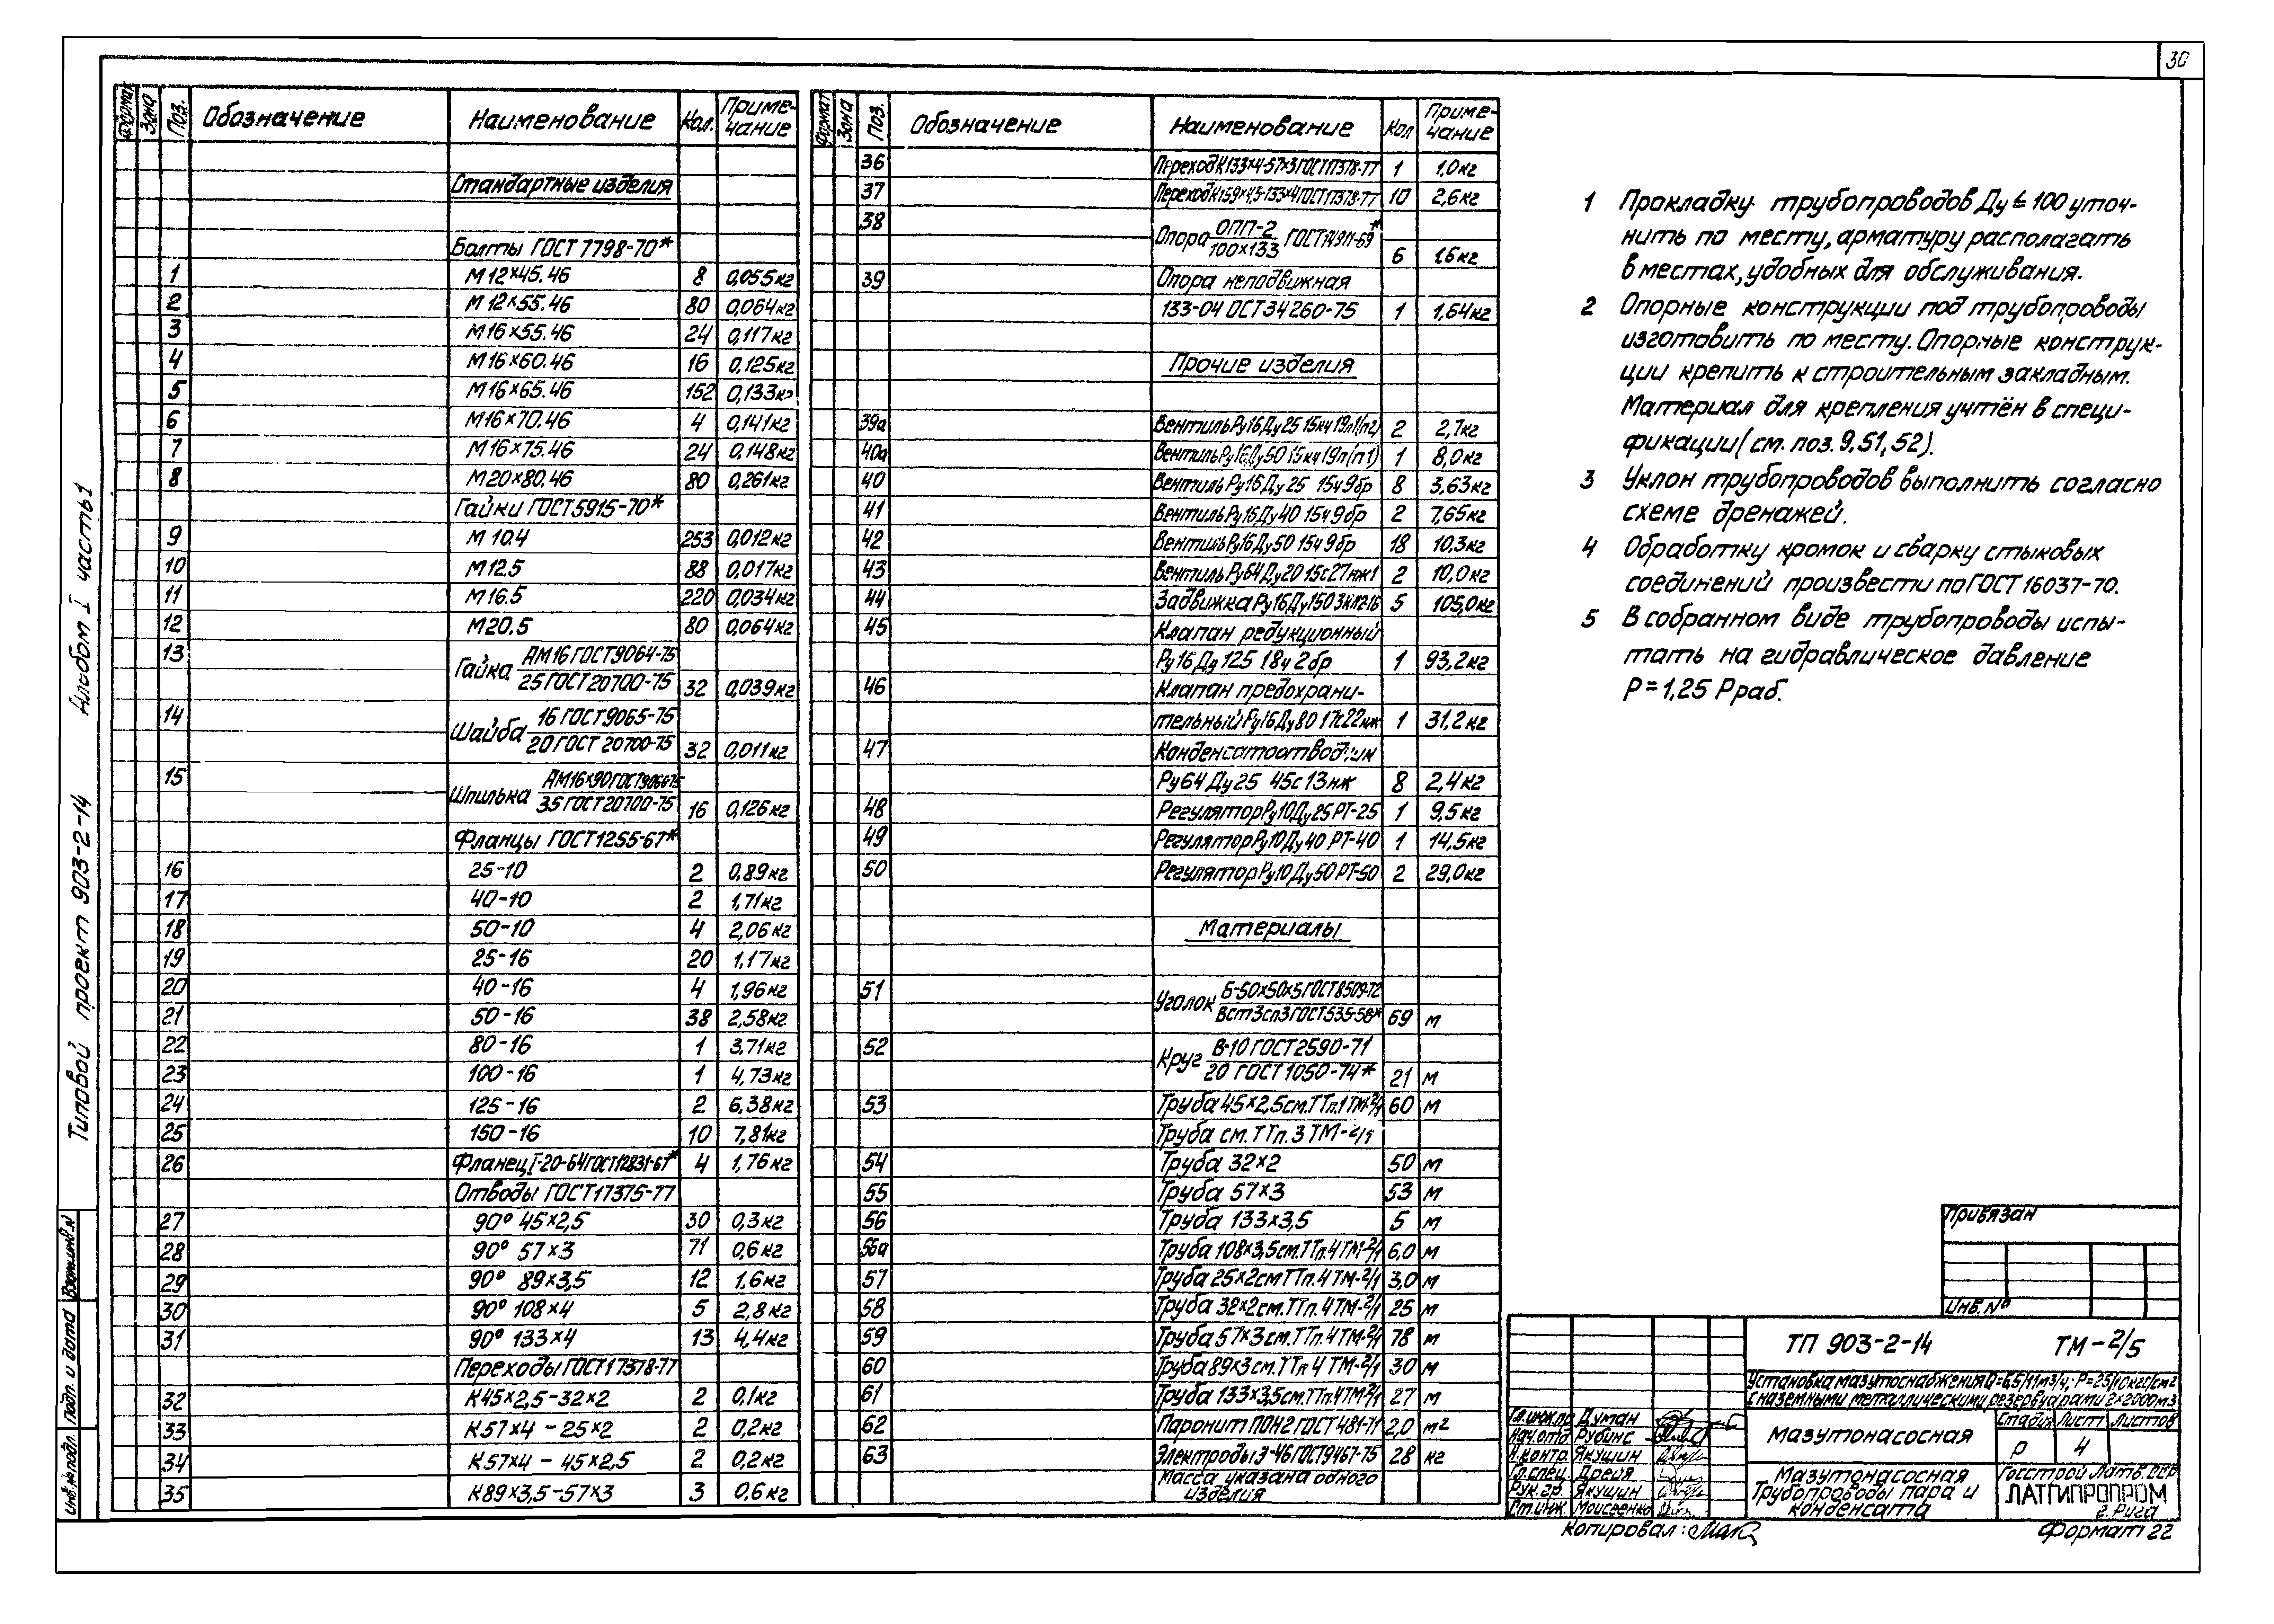 30
Формат Зона Поз. Обозначение Наименование Кол. Приме-чание
Стандартные изделия
Болты ГОСТ 7798-70*
1 М12×45.46 8 0,055кг
2 М12×55.46 80 0,064кг
3 М16×55.46 24 0,117кг
4 М16×60.46 16 0,125кг
5 М16×65.46 152 0,133кг
6 М16×70.46 4 0,141кг
7 М16×75.46 24 0,148кг
8 М20×80.46 80 0,261кг
Гайки ГОСТ5915-70*
9 М10.4 253 0,012кг
10 М12.5 88 0,017кг
11 М16.5 220 0,034кг
12 М20.5 80 0,064кг
13 Гайка АМ16 ГОСТ9064-75
25 ГОСТ20700-75 32 0,039кг
14 Шайба 16 ГОСТ9065-75
20 ГОСТ 20700-75 32 0,011кг
15 Шпилька АМ16×90ГОСТ9066-75
35 ГОСТ20700-75 16 0,126кг
Фланцы ГОСТ1255-67*
16 25-10 2 0,89кг
17 40-10 2 1,71кг
18 50-10 4 2,06кг
19 25-16 20 1,17кг
20 40-16 4 1,96кг
21 50-16 38 2,58кг
22 80-16 1 3,71кг
23 100-16 1 4,73кг
24 125-16 2 6,38кг
25 150-16 10 7,81кг
26 Фланец I-20-64ГОСТ12831-67* 4 1,76кг
Отводы ГОСТ17375-77
27 90° 45×2,5 30 0,3кг
28 90° 57×3 71 0,6кг
29 90° 89×3,5 12 1,6кг
30 90° 108×4 5 2,8кг
31 90° 133×4 13 4,4кг
Переходы ГОСТ17378-77
32 К45×2,5-32×2 2 0,1кг
33 К57×4-25×2 2 0,2кг
34 К57×4-45×2,5 2 0,2кг
35 К89×3,5-57×3 3 0,6кг
Формат Зона Поз. Обозначение Наименование Кол Приме-чание
36 Переход К133×4-57×3ГОСТ17378-77 1 1,0кг
37 Переход К159×4,5-133×4ГОСТ17378-77 10 2,6кг
38 Опора ОПП-2
100×133 ГОСТ14911-69* 6 1,6кг
39 Опора неподвижная
133-04 ОСТ34260-75 1 1,64кг
Прочие изделия
39а Вентиль Ру16Ду25 15кч19п1(п2) 2 2,7кг
40а Вентиль Ру16Ду50 15кч19п(п1) 1 8,0кг
40 Вентиль Ру16Ду25 15ч9бр 8 3,63кг
41 Вентиль Ру16Ду40 15ч9бр 2 7,65кг
42 Вентиль Ру16Ду50 15ч9бр 18 10,3кг
43 Вентиль Ру64Ду20 15с27нж1 2 10,0кг
44 Задвижка Ру16Ду150 ЗКЛ2-16 5 105,0кг
45 Клапан редукционный
Ру16Ду125 18ч2бр 1 93,2кг
46 Клапан предохрани-
тельный Ру16Ду80 17с22нж 1 31,2кг
47 Конденсатоотводчик
Ру64 Ду25 45с13нж 8 2,4кг
48 Регулятор Ру10Ду25 РТ-25 1 9,5кг
49 Регулятор Ру10Ду40 РТ-40 1 14,5кг
50 Регулятор Ру10Ду50 РТ-50 2 29,0кг
Материалы
51 Уголок Б-50×50×5ГОСТ8509-72
Вст3сп3ГОСТ535-58* 69 м
52 Круг В-10 ГОСТ2590-71
20 ГОСТ1050-74* 21 м
53 Труба 45×2,5см.ТТп.1ТМ-2/1 60 м
Труба см.ТТп.3 ТМ-2/1
54 Труба 32×2 50 м
55 Труба 57×3 53 м
56 Труба 133×3,5 5 м
56а Труба 108×3,5см.ТТп.4ТМ-2/1 6,0 м
57 Труба 25×2смТТп.4ТМ-2/1 3,0 м
58 Труба 32×2см.ТТп.4ТМ-2/1 25 м
59 Труба 57×3 см.ТТп.4ТМ-2/1 78 м
60 Труба 89×3 см.ТТп 4 ТМ-2/1 30 м
61 Труба 133×3,5см.ТТп.4ТМ-2/1 27 м
62 Паронит ПОН2 ГОСТ481-71 2,0 м²
63 Электроды Э-46ГОСТ9467-75 28 кг
Масса указана одного
изделия
1 Прокладку трубопроводов Ду≤100 уточ-
нить по месту, арматуру располагать
в местах, удобных для обслуживания.
2 Опорные конструкции под трубопроводы
изготовить по месту. Опорные конструк-
ции крепить к строительным закладным.
Материал для крепления учтён в специ-
фикации (см. поз. 9,51,52).
3 Уклон трубопроводов выполнить согласно
схеме дренажей.
4 Обработку кромок и сварку стыковых
соединений произвести по ГОСТ 16037-70.
5 В собранном виде трубопроводы испы-
тать на гидравлическое давление
Р=1,25 Рраб.
Привязан
Инв.№
ТП 903-2-14 ТМ-2/5
Установка мазутоснабжения Q=6,5/11м3/ч; Р=25/10кгс/см2
с наземными металлическими резервуарами 2×2000м3
Гл.инж.пр Думан
Нач.отд Рубинс
Н.контр. Якушин
Гл.спец. Дрейя
Рук.гр. Якушин
Ст.инж. Моисеенко
Мазутонасосная
Стадия Лист Листов
Р 4
Мазутонасосная
Трубопроводы пара и
конденсата
Госстрой Латв.ССР
ЛАТГИПРОПРОМ
г.Рига
Копировал:
Формат 22
Типовой проект 903-2-14 Альбом I часть 1
Взам.инв.N
Подп. и дата
Инв.№ подл.